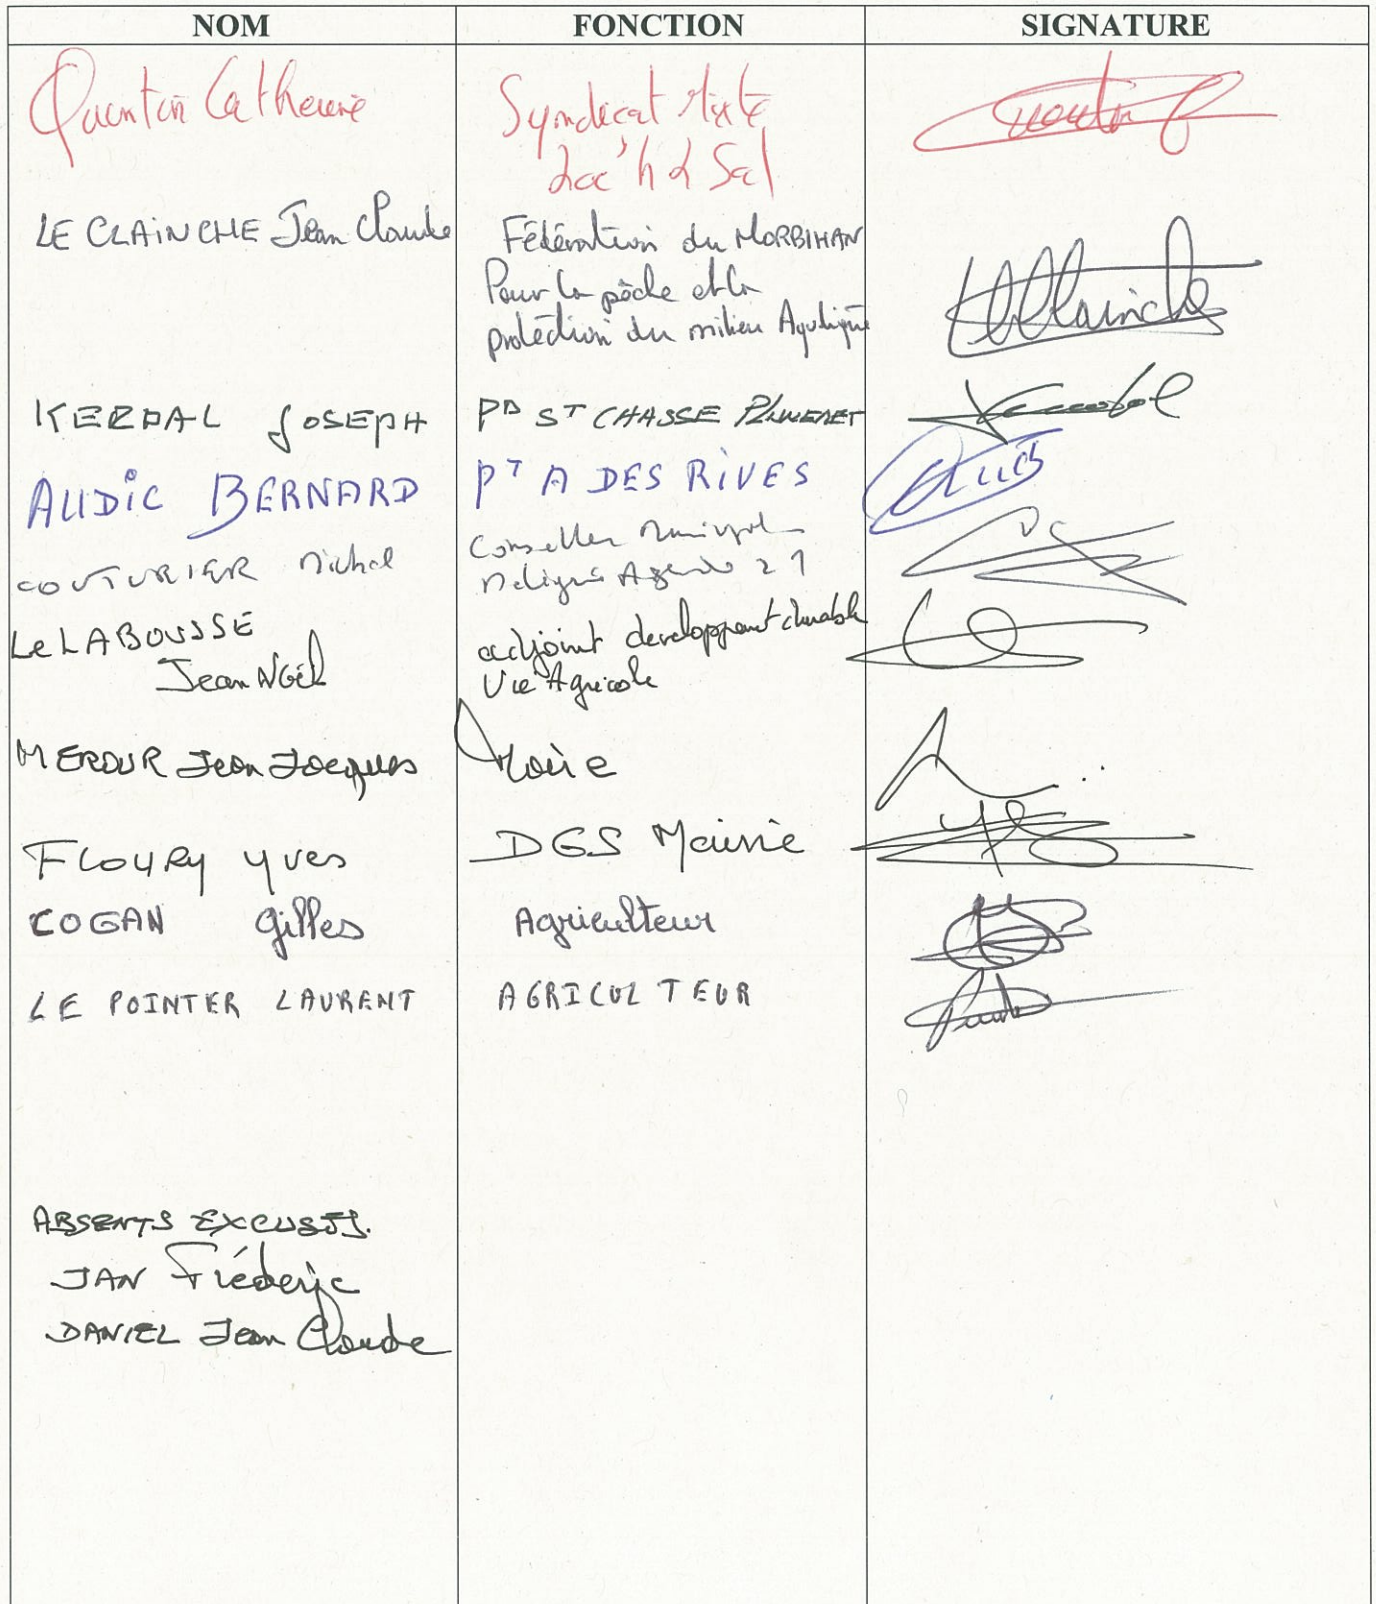 NOM FONCTION SIGNATURE
Quentin Catherine Syndicat Mixte
Loc'h & Sal
LE CLAINCHE Jean Claude Fédération du MORBIHAN
Pour la pêche et la
protection du milieu Aquatique
KERDAL JOSEPH PD ST CHASSE PLUNERET
AUDIC BERNARD PT A DES RIVES
COUTURIER Michel Conseiller Municipal
Délégué Agenda 21
Le LABOUSSE adjoint developpement durable
Jean Noël Vie Agricole
MEROUR Jean Jacques Maire
FLOURY Yves DGS Mairie
COGAN Gilles Agriculteur
LE POINTER LAURENT AGRICULTEUR
ABSENTS EXCUSÉS.
JAN Fréderic
DANIEL Jean Claude